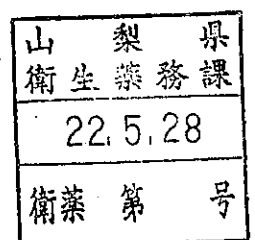 山梨県
衛生薬務課
22.5.28
衛薬第 号